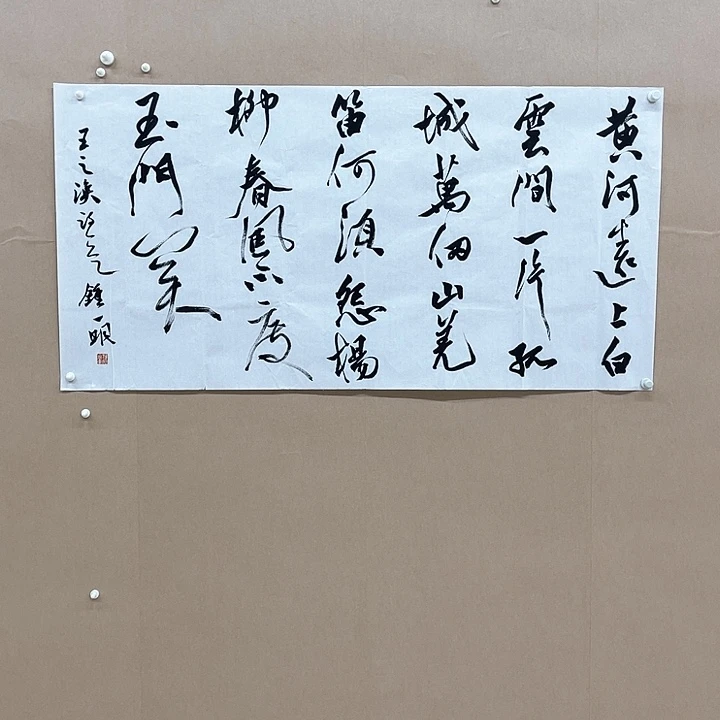 黄河遠上白
雲間一片孤
城萬仞山羌
笛何須怨楊
柳春風不度
玉門關
王之渙